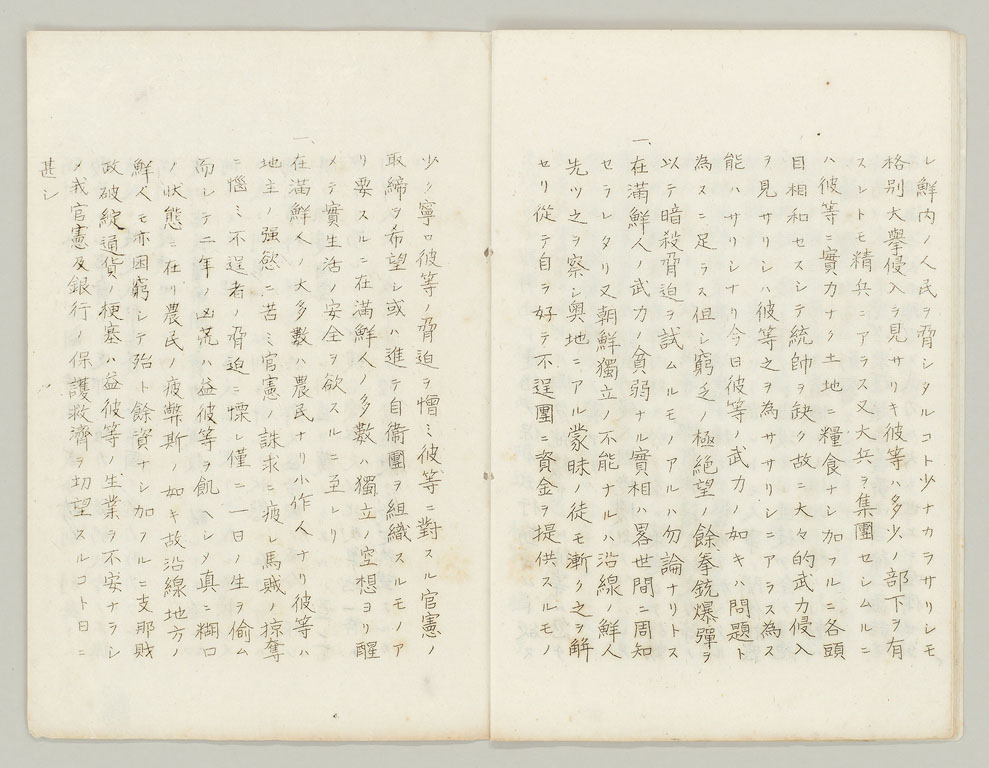 レ鮮内ノ人民ヲ脅シタルコト少ナカラサリシモ
格別大擧侵入ヲ見サリキ彼等ハ多少ノ部下ヲ有
スレトモ精兵ニアラス又大兵ヲ集團セシムルニ
ハ彼等ニ實力ナク土地ニ糧食ナシ加フルニ各頭
目相和セスシテ統帥ヲ缺ク故ニ大々的武力侵入
ヲ見サリシハ彼等之ヲ為ササリシニアラス為ス
能ハサリシナリ今日彼等ノ武力ノ如キハ問題ト
為スニ足ラス但シ窮乏ノ極絶望ノ餘拳銃爆彈ヲ
以テ暗殺脅迫ヲ試ムルモノアルハ勿論ナリトス
一、在滿鮮人ノ武力ノ貧弱ナル實相ハ畧世間ニ周知
セラレタリ又朝鮮獨立ノ不能ナルハ沿線ノ鮮人
先ツ之ヲ察シ奥地ニアル蒙昧ノ徒モ漸ク之ヲ解
セリ從テ自ラ好テ不逞團ニ資金ヲ提供スルモノ
少ク寧ロ彼等ノ脅迫ヲ憎ミ彼等ニ對スル官憲ノ
取締ヲ希望シ或ハ進テ自衞團ヲ組織スルモノア
リ要スルニ在滿鮮人ノ多數ハ獨立ノ空想ヨリ醒
メテ實生活ノ安全ヲ欲スルニ至レリ
一、在滿鮮人ノ大多數ハ農民ナリ小作人ナリ彼等ハ
地主ノ強慾ニ苦ミ官憲ノ誅求ニ疲レ馬賊ノ掠奪
ニ惱ミ不逞者ノ脅迫ニ慄レ僅ニ一日ノ生ヲ偷ム
而シテ二年ノ凶荒ハ益彼等ヲ飢ヘシメ真ニ糊口
ノ狀態ニ在リ農民ノ疲弊斯ノ如キ故沿線地方ノ
鮮人モ亦困窮シテ殆ト餘資ナシ加フルニ支那財
政破綻通貨ノ梗塞ハ益彼等ノ生業ヲ不安ナラシ
メ我官憲及銀行ノ保護救濟ヲ切望スルコト日ニ
甚シ